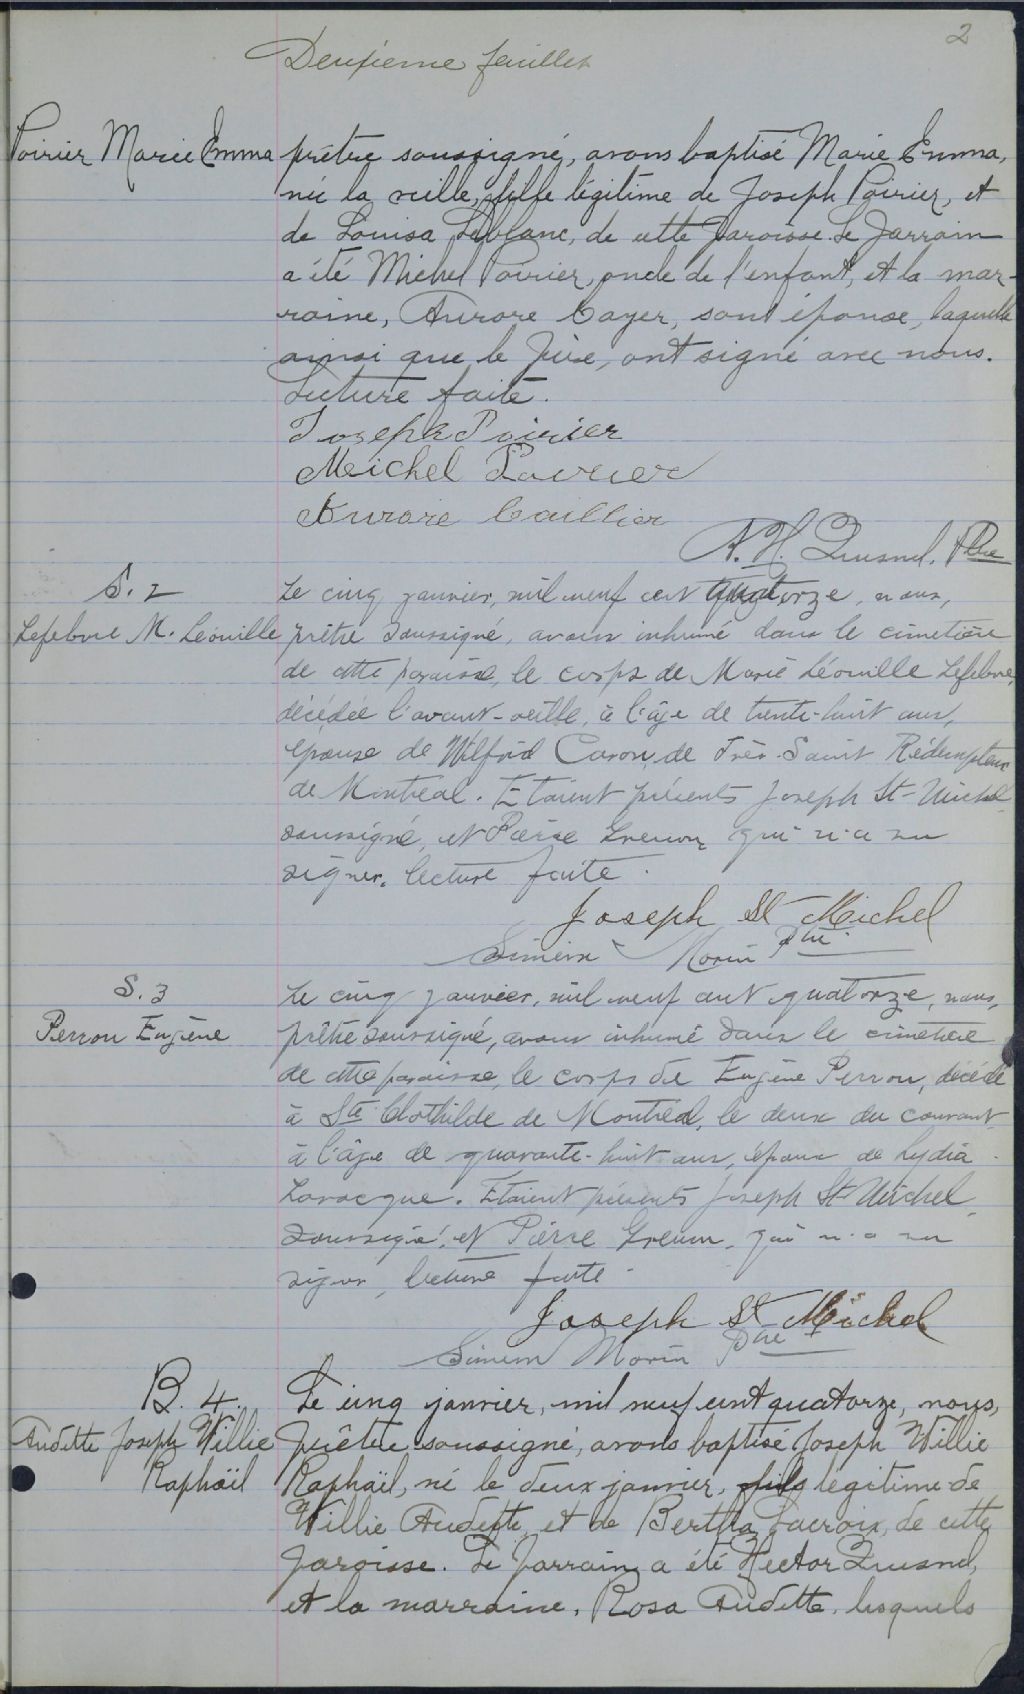 2
Deuxieme feuillet
Poirier Marie Emma
prêtre soussigné, avons baptisé Marie Emma,
née la veille, fille légitime de Joseph Poirier, et
de Louisa Leblanc, de cette Paroisse. Le Parrain
a été Michel Poirier, oncle de l'enfant, et la mar-
raine, Aurore Cayer, son épouse, laquelle
ainsi que le Père, ont signé avec nous.
Lecture faite.
Joseph Poirier
Michel Poirier
Aurore Caillier
A. H. Quesnel, Ptre
S. 2
Lefebvre M. Léonille
Le cinq janvier, mil neuf cent quatorze, nous,
prêtre soussigné, avons inhumé dans le cimetière
de cette paroisse, le corps de Marie Léonille Lefebvre,
décédée l'avant-veille, à l'âge de trente-huit ans,
épouse de Wilfrid Caron, de Très-Saint Rédempteur
de Montréal. Etaient présents Joseph St-Michel
soussigné, et Pierre Grenon qui n'a su
signer. Lecture faite.
Joseph St Michel
Siméon Morin Ptre
S. 3
Perron Eugène
Le cinq janvier, mil neuf cent quatorze, nous,
prêtre soussigné, avons inhumé dans le cimetière
de cette paroisse, le corps de Eugène Perron, décédé
à Ste Clothilde de Montréal, le deux du courant
à l'âge de quarante-huit ans, époux de Lydia
Laracque. Etaient présents Joseph St-Michel,
soussigné, et Pierre Grenon, qui n'a su
signer, lecture faite.
Joseph St Michel
Siméon Morin Ptre
B. 4.
Audette Joseph Willie
Raphaïl
Le cinq janvier, mil neuf cent quatorze, nous,
Prêtre soussigné, avons baptisé Joseph Willie
Raphaïl, né le deux janvier, fils légitime de
Willie Audette, et de Bertha Lacroix, de cette
Paroisse. Le Parrain a été Hector Quesnel,
et la marraine, Rosa Audette, lesquels